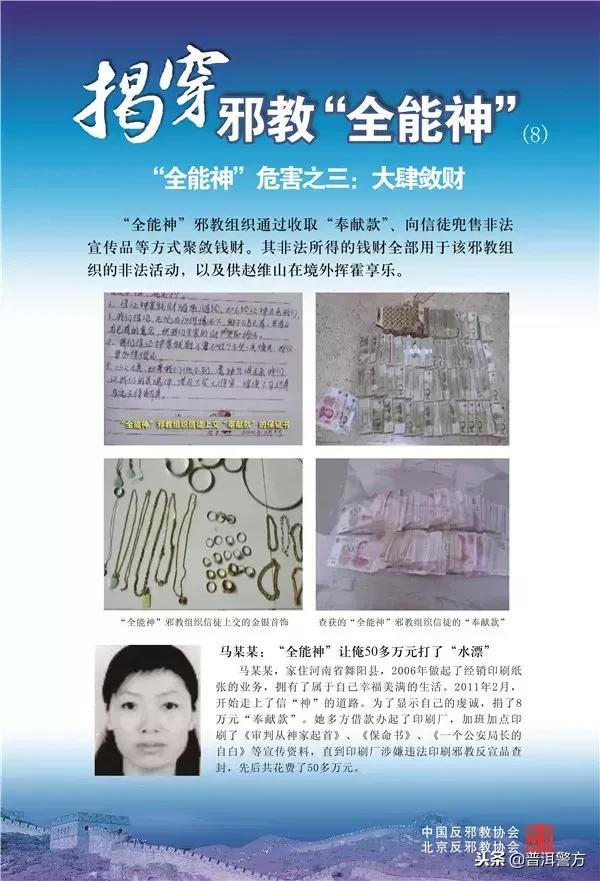 揭穿邪教“全能神”（8）
“全能神”危害之三：大肆敛财
“全能神”邪教组织通过收取“奉献款”、向信徒兜售非法
宣传品等方式聚敛钱财。其非法所得的钱财全部用于该邪教组
织的非法活动，以及供赵维山在境外挥霍享乐。
“全能神”邪教组织信徒上交“奉献款”的保证书
“全能神”邪教组织信徒上交的金银首饰
查获的“全能神”邪教组织信徒的“奉献款”
马某某：“全能神”让俺50多万元打了“水漂”
马某某，家住河南省舞阳县，2006年做起了经销印刷纸
张的业务，拥有了属于自己幸福美满的生活。2011年2月，
开始走上了信“神”的道路。为了显示自己的虔诚，捐了8
万元“奉献款”。她多方借款办起了印刷厂，加班加点印
刷了《审判从神家起首》、《保命书》、《一个公安局长的
自白》等宣传资料，直到印刷厂涉嫌违法印刷邪教反宣品查
封，先后共花费了50多万元。
中国反邪教协会
北京反邪教协会
头条@普洱警方